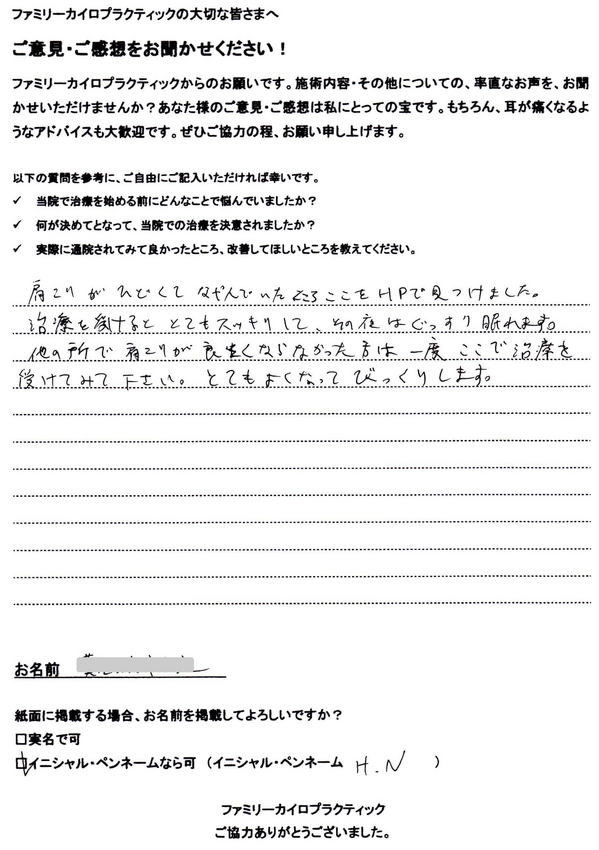 ファミリーカイロプラクティックの大切な皆さまへ
ご意見・ご感想をお聞かせください！
ファミリーカイロプラクティックからのお願いです。施術内容・その他についての、率直なお声を、お聞
かせいただけませんか？あなた様のご意見・ご感想は私にとっての宝です。もちろん、耳が痛くなるよ
うなアドバイスも大歓迎です。ぜひご協力の程、お願い申し上げます。
以下の質問を参考に、ご自由にご記入いただければ幸いです。
✓ 当院で治療を始める前にどんなことで悩んでいましたか？
✓ 何が決めてとなって、当院での治療を決意されましたか？
✓ 実際に通院されてみて良かったところ、改善してほしいところを教えてください。
肩こりがひどくてなやんでいたところここをHPで見つけました。
治療を受けるととてもスッキリして、その夜はぐっすり眠れます。
他の所で肩こりが良くならなかった方は一度ここで治療を
受けてみて下さい。とてもよくなってびっくりします。
お名前
紙面に掲載する場合、お名前を掲載してよろしいですか？
□実名で可
☑イニシャル・ペンネームなら可（イニシャル・ペンネーム H.N ）
ファミリーカイロプラクティック
ご協力ありがとうございました。